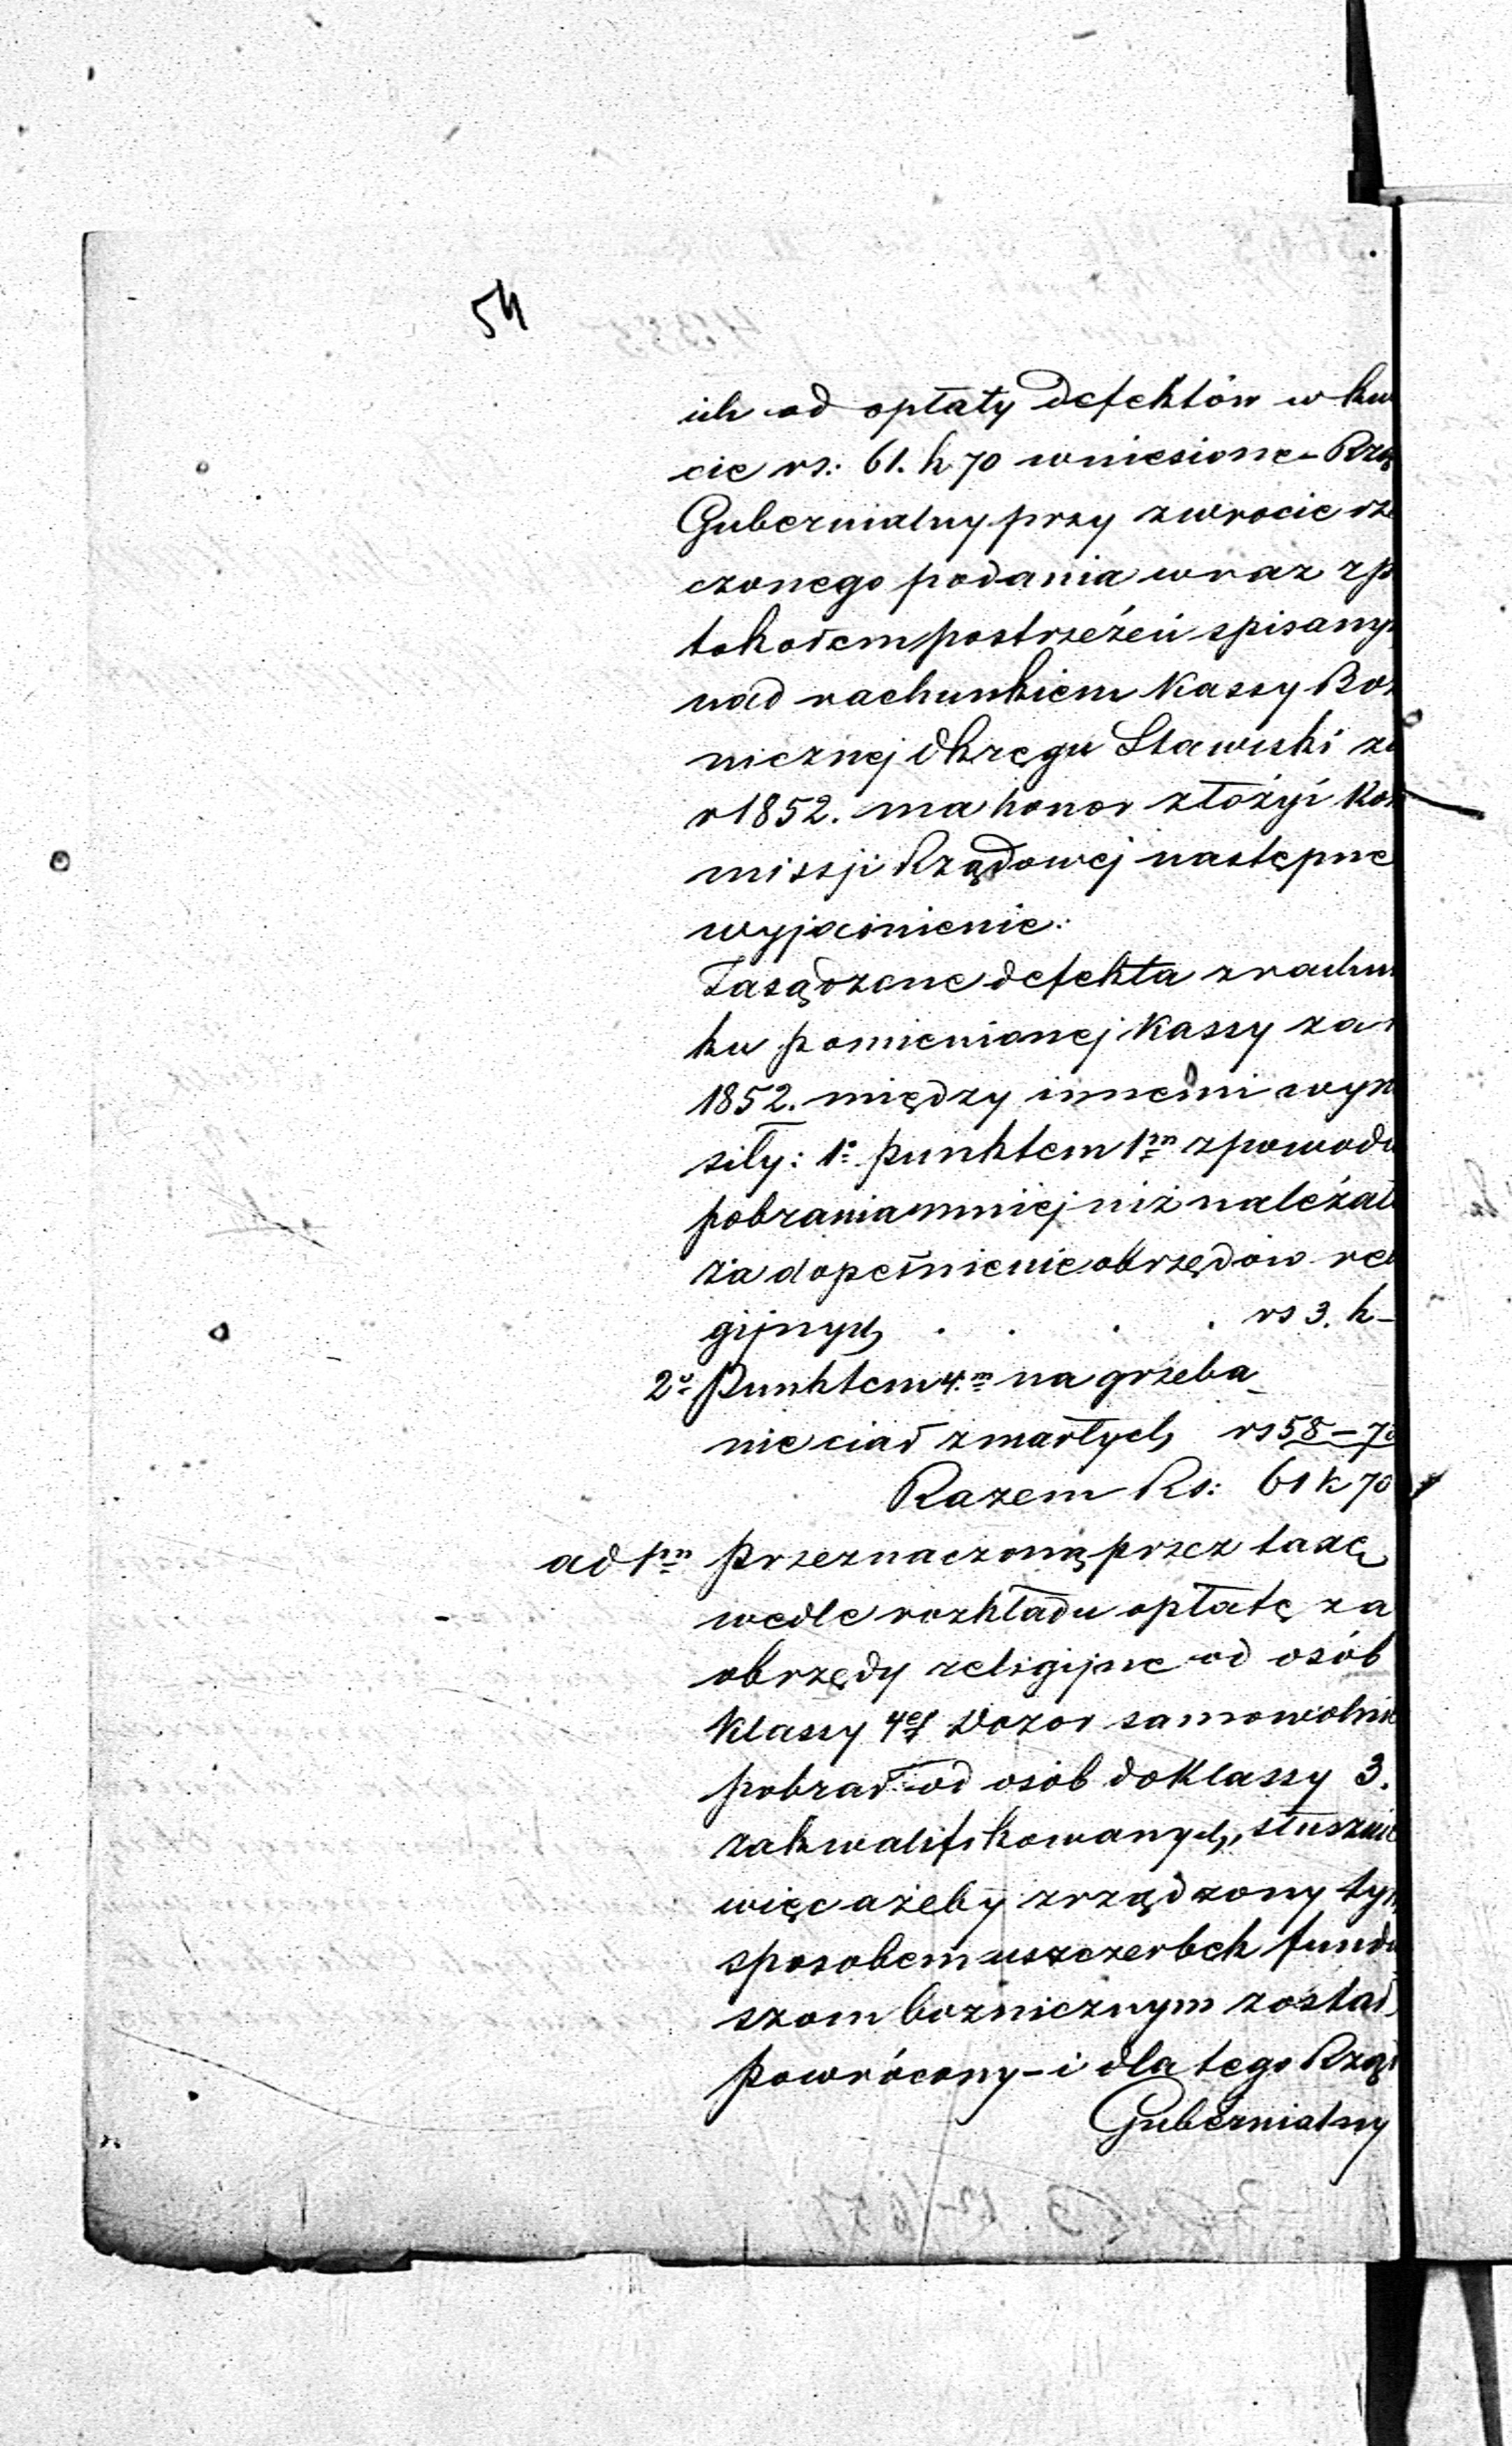 54
ich od opłaty Defektów w kw
cie rs: 61. k 70 wniesione – Rzą
Gubernialny przy zwrocie rze
czonego podania wraz z p
tokołem postrzeżeń spisany
nad rachunkiem Kassy Boż
nicznej Okręgu Stawiski za
r 1852. ma honor złożyć Kom
missji Rządowej następne
wyjaśnienie:
Zasądzone defekta z rachun
ku pomienionej Kassy za r
1852. między innemi wyno
siły: 1º punktem 1m z powodu
pobrania mniej niż należał
za dopełnienie obrzędów reli
gijnych . . . . rs 3. k –
2º Punktem 4.m na grzeba_
nie ciał zmarłych rs 58 – 70
Razem Rs: 61 k 70
ad 1m Przeznaczoną przez taxę
wedle rozkładu opłatę za
obrzędy religijne od osób
Klassy 4ej Dozor samowolnie
pobrał od osób do Klassy 3.
zakwalifikowanych, słusznie
więc ażeby zrządzony tym
sposobem uszczerbek fundu
szom boznicznym został
powrócony – i dla tego Rząd
Gubernialny